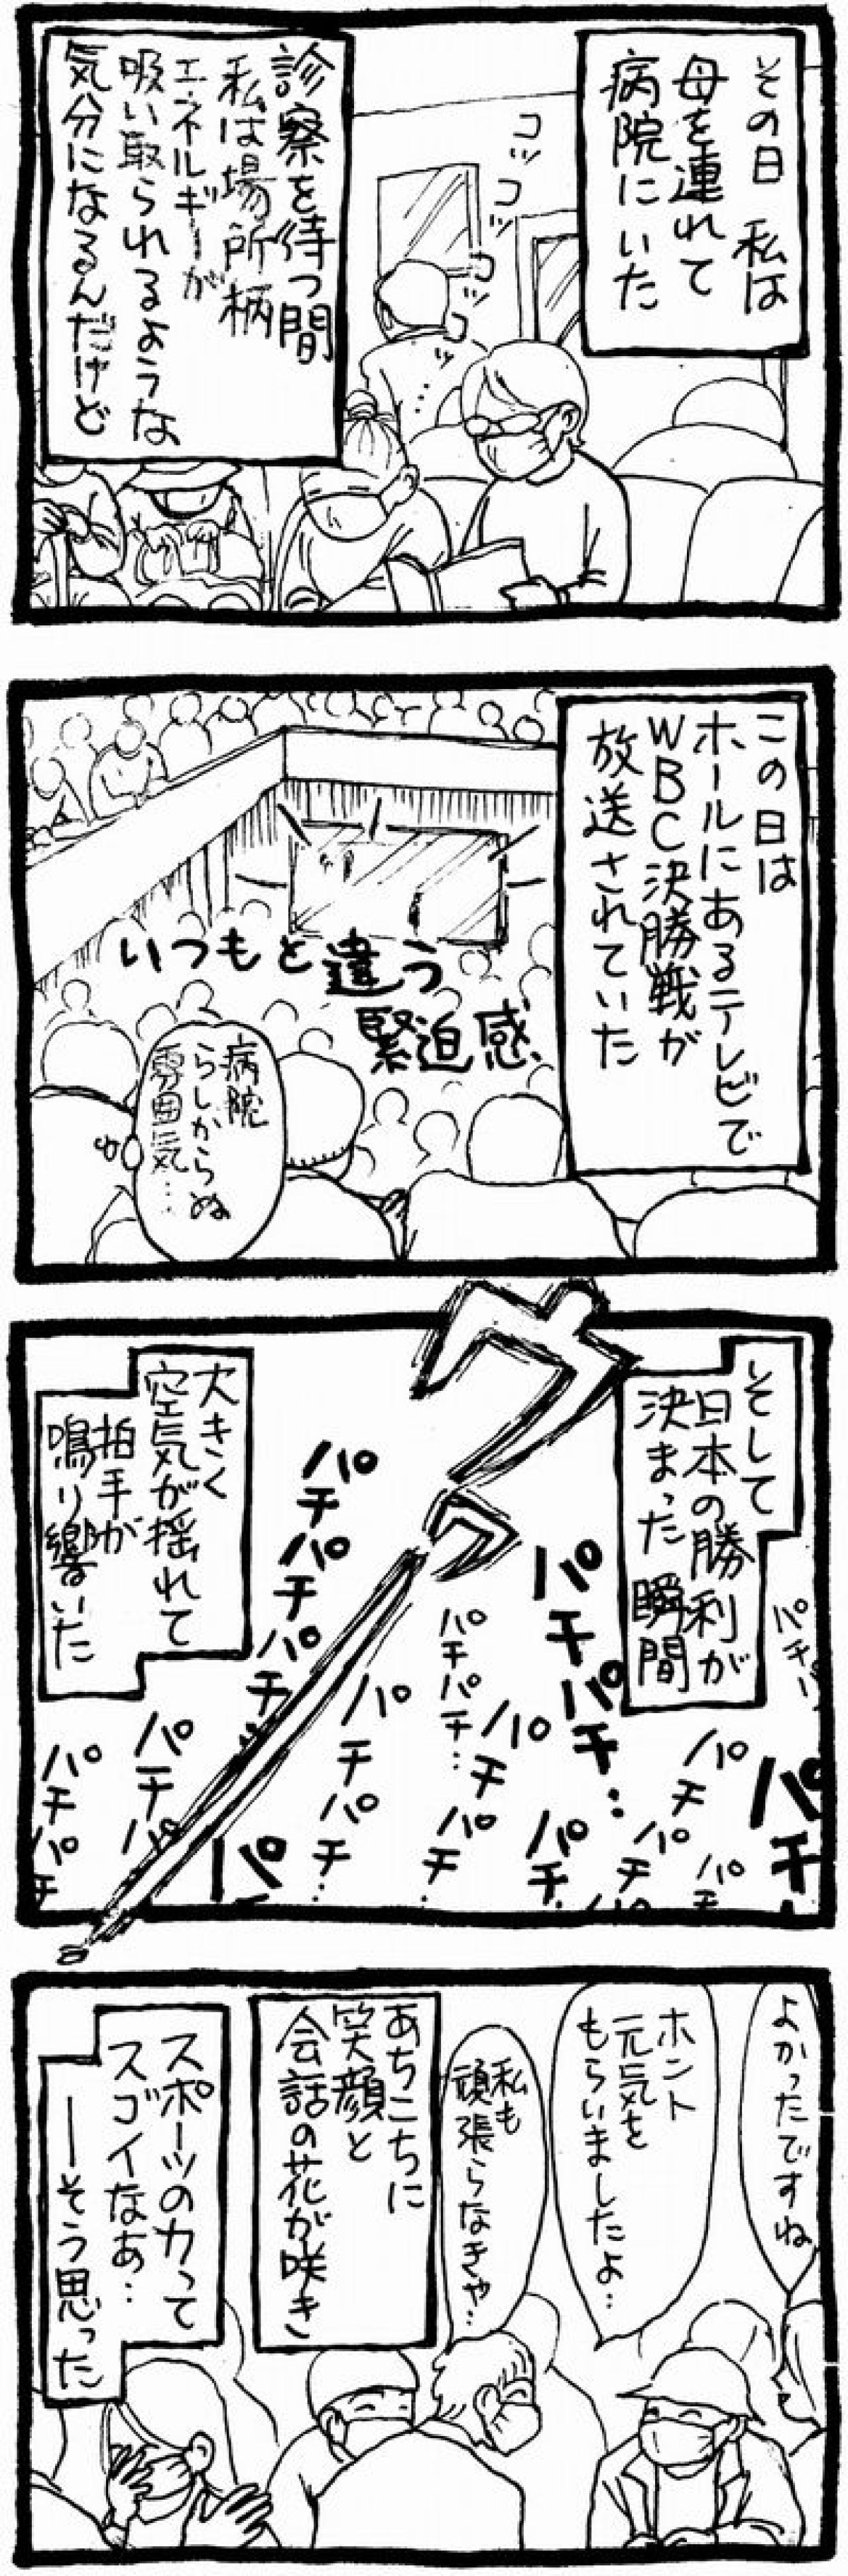 その日 私は
母を連れて
病院にいた
コツ
コツ
コツ
コツ
…
診察を待つ間
私は場所柄
エネルギーが
吸い取られるような
気分になるんだけど
この日は
ホールにあるテレビで
WBC決勝戦が
放送されていた
いつもと違う
緊迫感
病院
らしからぬ
雰囲気…
そして
日本の勝利が
決まった瞬間
ワァ
ー
パチパチ
パチパチ…
パチパチパチ
パチパチ…
パチパチ…
パチ
パチ
パチ
パチ
パチ
パチ
パチ…
パチパ
パチパチ
パ
大きく
空気が揺れて
拍手が
鳴り響いた
よかったですね
ホント
元気を
もらいましたよ…
私も
頑張らなきゃ…
あちこちに
笑顔と
会話の花が咲き
スポーツの力って
スゴイなあ…
―そう思った